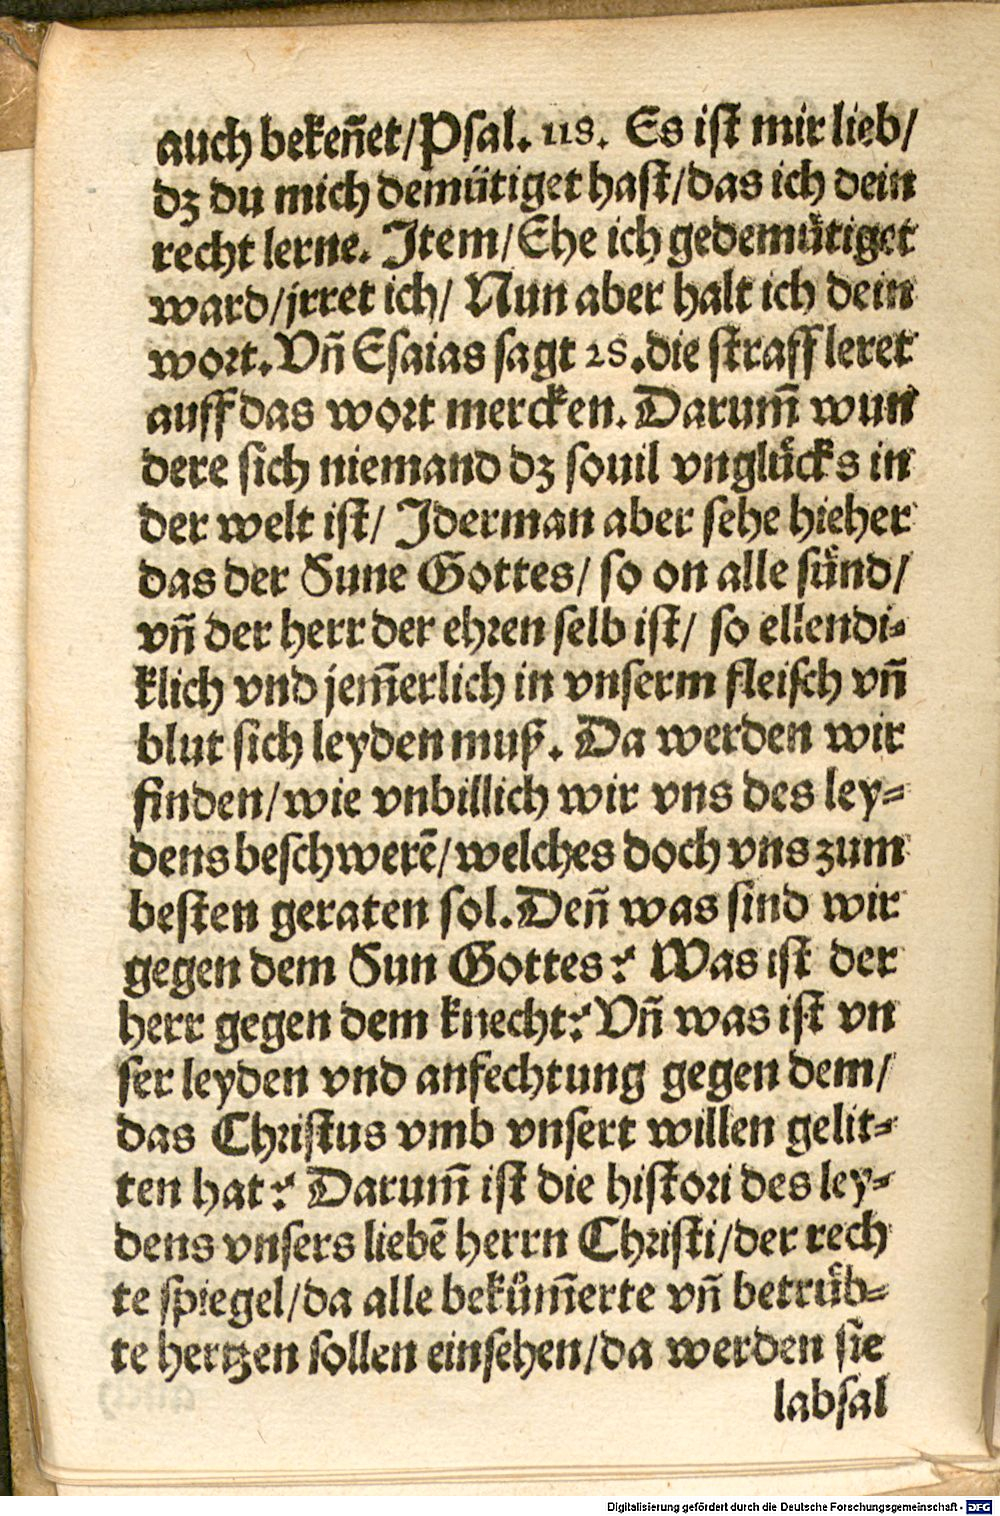 auch bekeñet/Psal. 118. Es ist mir lieb/
dz du mich demütiget hast/das ich dein
recht lerne. Item/Ehe ich gedemütiget
ward/jrret ich/ Nun aber halt ich dein
wort. Vñ Esaias sagt 28. die straff leret
auff das wort mercken. Darum̃ wun
dere sich niemand dz souil vnglücks in
der welt ist/ Jderman aber sehe hieher
das der Sune Gottes/ so on alle sünd/
vñ der herr der ehren selb ist/ so ellendi-
klich vnd jem̃erlich in vnserm fleisch vñ
blut sich leyden muß. Da werden wir
finden/wie vnbillich wir vns des ley-
dens beschwerẽ/welches doch vns zum
besten geraten sol. Deñ was sind wir
gegen dem Sun Gottes? Was ist der
herr gegen dem knecht? Vñ was ist vn
ser leyden vnd anfechtung gegen dem/
das Christus vmb vnsert willen gelit-
ten hat? Darum̃ ist die histori des ley-
dens vnsers liebẽ herrn Christi/der rech
te spiegel/da alle bekům̃erte vñ betrüb-
te hertzen sollen einsehen/da werden sie
labsal
Digitalisierung gefördert durch die Deutsche Forschungsgemeinschaft - DFG